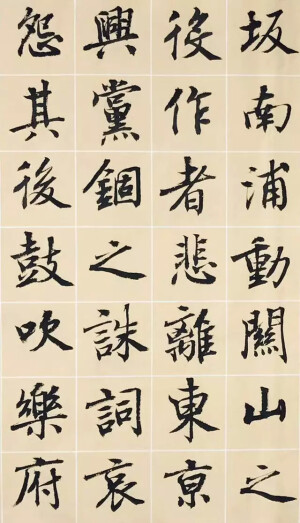 坂南浦動關山之
役作者悲離東亰
興黨錮之誅詞哀
怨其後鼓吹樂府